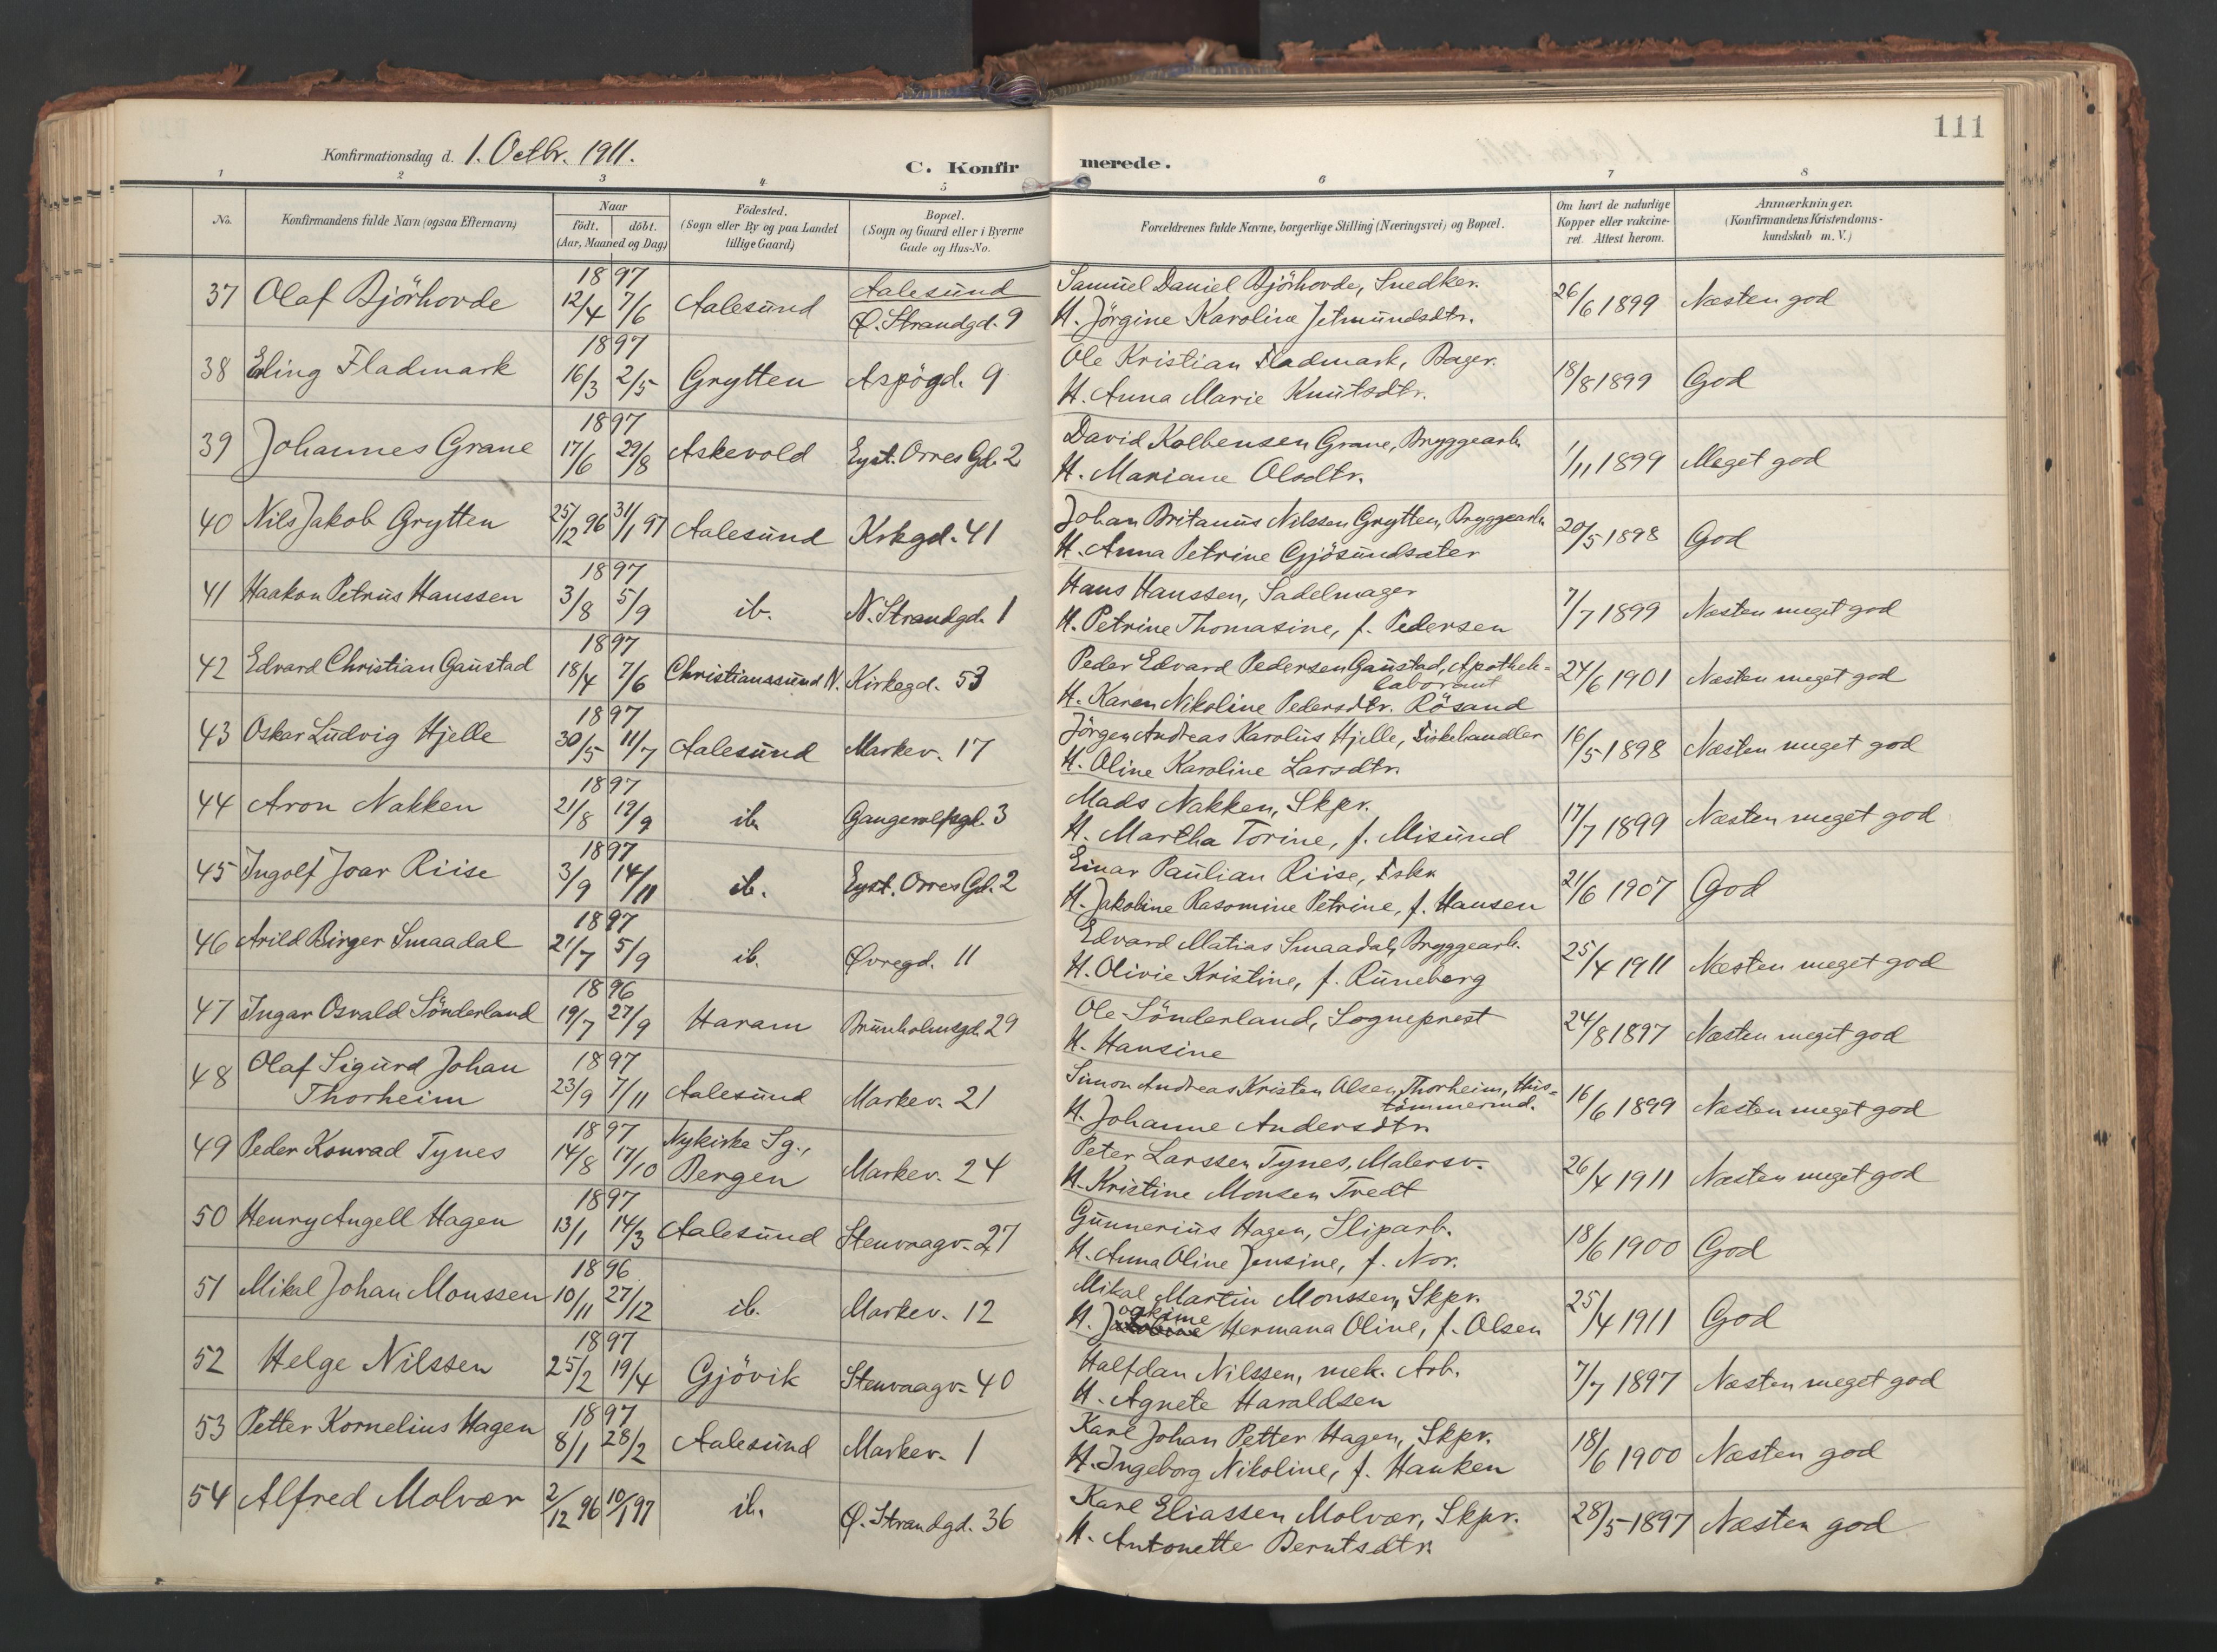 111
Konfirmationsdag d. 1. Octbr. 1911.
C. Konfirmerede.
1 2 3 4 5 6 7 8
No. Konfirmandens fulde Navn (ogsaa Efternavn) Naar födt. döbt. (Aar, Maaned og Dag) Födested. (Sogn eller By og paa Landet tillige Gaard) Bopæl. (Sogn og Gaard eller i Byerne Gade og Hus-No. Forældrenes fulde Navne, borgerlige Stilling (Næringsvei) og Bopæl. Om havt de naturlige Kopper eller vakcineret. Attest herom. Anmærkninger. (Konfirmandens Kristendomskundskab m. V.)
37 Olaf Björhovde 1897 12/4 7/6 Aalesund Aalesund Ø. Strandgd. 9 Samuel Daniel Björhovde, Snedker. 26/6 1899 Næsten god
H. Jörgine Karoline Jetmundsdtr.
38 Erling Fladmark 1897 16/3 2/5 Grytten Aspögd. 9 Ole Kristian Fladmark, Bager. 18/8 1899 God
H. Anna Marie Knutsdtr.
39 Johannes Grane 1897 17/6 29/8 Askevold Eyst. Orres Gd. 2 David Kolbensen Grane, Bryggearb. 1/11 1899 Meget god
H. Mariane Olsdtr.
40 Nils Jakob Grytten 25/12 96 31/1 97 Aalesund Krkgd. 41 Johan Britanus Nilssen Grytten, Bryggearb. 20/5 1898 God
H. Anna Petrine Gjösundsæter
41 Haakon Petrus Hanssen 1897 3/8 5/9 ib. N. Strandgd. 1 Hans Hanssen, Sadelmager 7/7 1899 Næsten meget god
H. Petrine Thomasine, f. Pedersen
42 Edvard Christian Gaustad 1897 18/4 7/6 Christianssund N. Kirkegd. 53 Peder Edvard Pedersen Gaustad, Apothek-laborant 24/6 1901 Næsten meget god
H. Karen Nikoline Pedersdtr. Rösand
43 Oskar Ludvig Hjelle 1897 30/5 11/7 Aalesund Markev. 17 Jörgen Andreas Karolus Hjelle, Fiskehandler 16/5 1898 Næsten meget god
H. Oline Karoline Larsdtr.
44 Aron Nakken 1897 21/8 19/9 ib. Gangerolfsgd. 3 Mads Nakken, Skpr. 17/7 1899 Næsten meget god
H. Martha Torine, f. Misund
45 Ingolf Joar Riise 1897 3/9 14/11 ib. Eyst. Orres Gd. 2 Einar Paulian Riise, Fskr. 21/6 1907 God
H. Jakobine Rasomine Petrine, f. Hansen
46 Arild Birger Smaadal 1897 21/7 5/9 ib. Øvregd. 11 Edvard Matias Smaadal, Bryggearb. 25/4 1911 Næsten meget god
H. Olivie Kristine, f. Runeberg
47 Ingar Osvald Sönderland 1896 19/7 27/9 Haram Brunholmsgd. 29 Ole Sönderland, Sogneprest 24/8 1897 Næsten meget god
H. Hansine
48 Olaf Sigurd Johan Thorheim 1897 23/9 7/11 Aalesund Markev. 21 Simon Andreas Kristen Olsen Thorheim, Hus-tömmermd. 16/6 1899 Næsten meget god
H. Johanne Andersdtr.
49 Peder Konrad Tynes 1897 14/8 17/10 Nykirke Sg., Bergen Markev. 24 Peter Larssen Tynes, Malersv. 26/4 1911 Næsten meget god
H. Kristine Monsen Tredt
50 Henry Angell Hagen 1897 13/1 14/3 Aalesund Stenvaagv. 27 Gunnerius Hagen, Sliparb. 18/6 1900 God
H. Anna Oline Jensine, f. Nor.
51 Mikal Johan Monssen 1896 10/11 27/12 ib. Markev. 12 Mikal Martin Monssen, Skpr. 25/4 1911 God
H. Joakime Hermana Oline, f. Olsen
52 Helge Nilssen 1897 25/2 19/4 Gjövik Stenvaagv. 40 Halfdan Nilssen, mek. Arb. 7/7 1897 Næsten meget god
H. Agnete Haraldsen
53 Petter Kornelius Hagen 1897 8/1 28/2 Aalesund Markev. 1 Karl Johan Petter Hagen, Skpr. 18/6 1900 Næsten god
H. Ingeborg Nikoline, f. Hauken
54 Alfred Molvær 2/12 96 10/1 97 ib. Ø. Strandgd. 36 Karl Eliassen Molvær, Skpr. 28/5 1897 Næsten god
H. Antonette Berntsdtr.